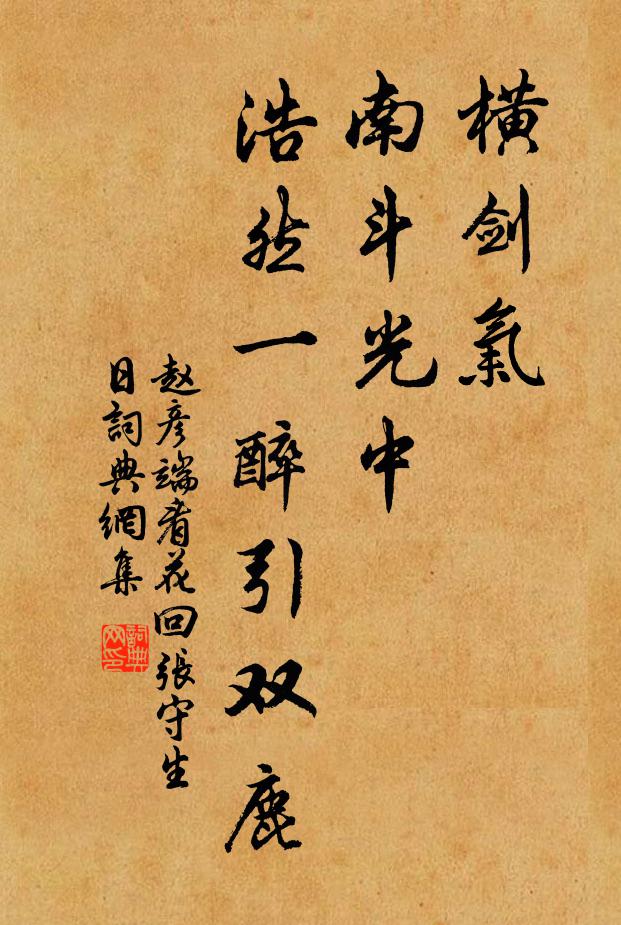 橫劍氣
南斗光中
浩然一醉引双鹿
赵彦端看花回張守生
日詞典網集
詞典
网印